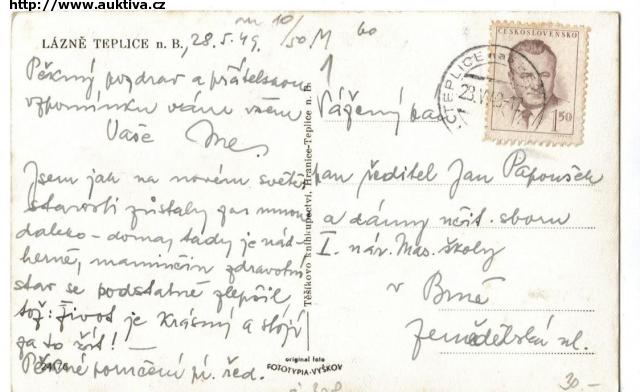 http://www.auktiva.cz
10/50/M
60
LÁZNĚ TEPLICE n. B., 28.5.49.
Pěkný pozdrav a přátelskou
vzpomínku všem
Vaše
Jsem jak na novém světě,
starosti zůstaly za mnou
daleko – doma, tady je nád-
herně, maminčin zdravotní
stav se podstatně zlepšil,
tož: Život je krásný a stojí
za to žít! —
Pěkné poručení pí. řed.
Těšíkovo knihkupectví, Hranice-Teplice n. B.
original foto
FOTOTYPIA-VYŠKOV
ČESKOSLOVENSKO
1.50
TEPLICE na
1
Vážený pan
pan ředitel Jan Papoušek
a dámy učit. sboru
I. nár. Mas. školy
v Brně
Zemědělská ul.
30.—